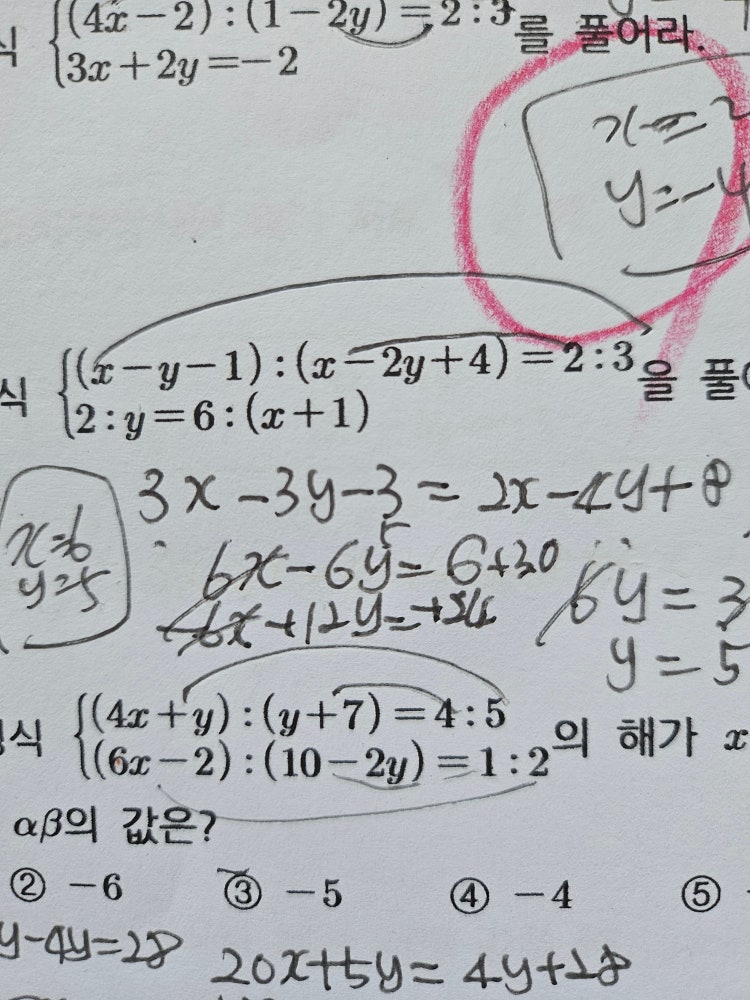 식 (4x−2) : (1−2y) = 2 : 3 를 풀어라.
3x + 2y = −2
x = 2
y = −4
식 (x−y−1) : (x−2y+4) = 2 : 3 을 풀
2 : y = 6 : (x+1)
3x − 3y − 3 = 2x − 4y + 8
x = 6
y = 5
6x − 6y = 6 + 30
−6x + 12y =
6y = 3
y = 5
식 (4x+y) : (y+7) = 4 : 5
((6x−2) : (10−2y) = 1 : 2 의 해가 x
αβ의 값은?
② −6 ③ −5 ④ −4 ⑤
y − 4y = 28
20x + 5y = 4y + 28